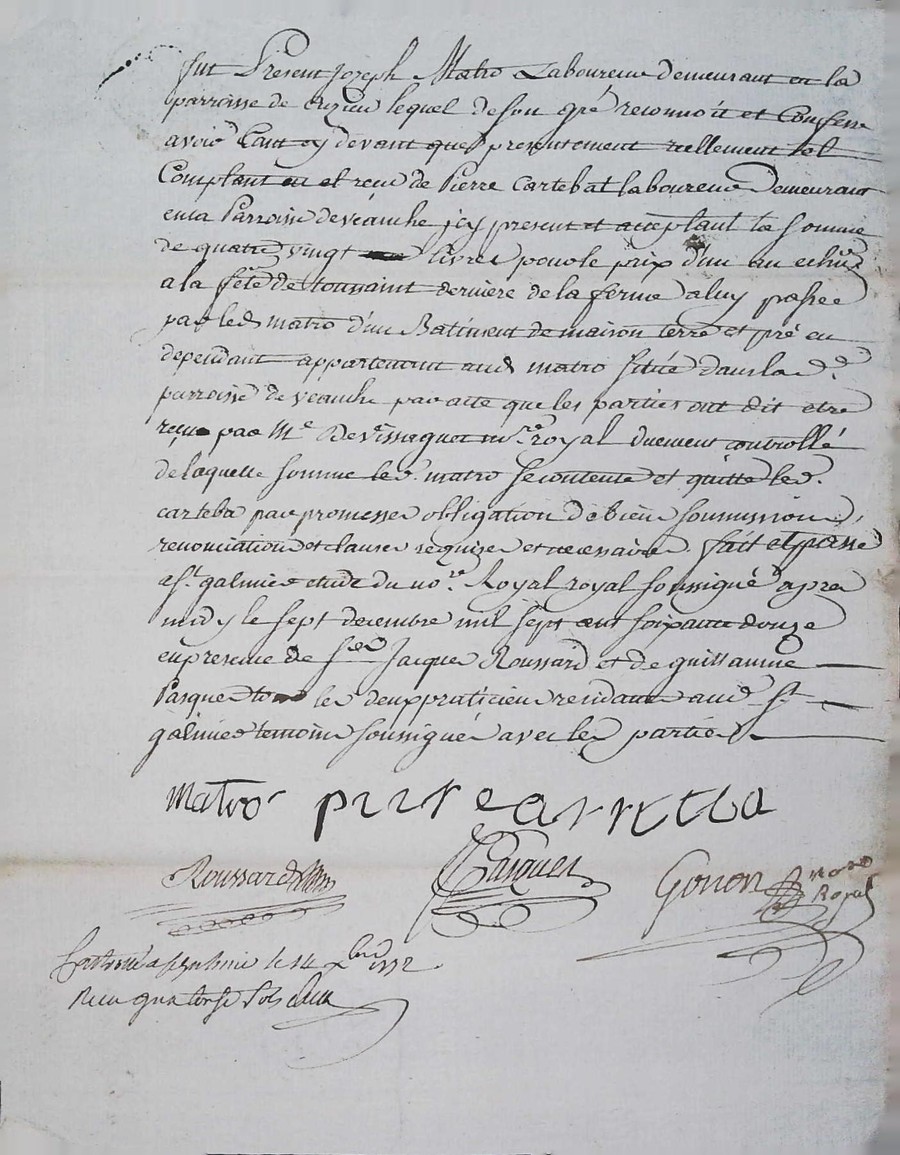 fut Present Joseph Matro Laboureur demeurant en la
parroisse de lequel de son gré reconnoit et Confesse
avoir tant cy devant que presentement reellement
Comptant eu et receu de Pierre Cartebat laboureur Demeurant
en la Parroisse de veauche icy present et acceptant la somme
de quatre vingt livres pour le prix d'un an echus
a la fête de toussaint derniere de la ferme a luy passee
par led matro d'un Batiment de maison terre et pré en
dependant appartenant aud matro situé dans lad.
parroisse de veauche par acte que les parties ont dit etre
reçu par Me Devissaguet nre royal duement controllé
de laquelle somme led. matro se contente et quitte led.
carteba par promesses obligation de biens soumissions
renonciations et clauses requizes et necessaires. fait et passé
a St. galmier etude du nore. Royal royal soussigné apres
midy le sept decembre mil sept cent soixante douze
en presence de sieur Jacques Roussard et de guillaume
Pasquer les deux praticiens rendants aud St
galmier temoins soussignés avec les parties
Matro
Roussard Pasquer Gonon nore Royal
a st galmie le 14 xbre 1772
Recu quatorse sols